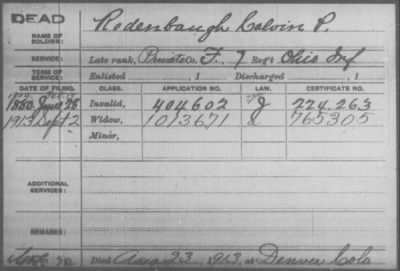 DEAD
NAME OF SOLDIER: Rodenbaugh Calvin P.
SERVICE: Late rank, Private Co. F, 7 Reg't Ohio Inf.
TERM OF SERVICE: Enlisted , 1 Discharged , 1
DATE OF FILING. CLASS. APPLICATION NO. LAW. CERTIFICATE NO.
1880 June 28 Invalid, 404602 J 224.263
1913 Sept 2 Widow, 1013671 765305
Minor,
ADDITIONAL SERVICES:
REMARKS:
Died Aug 23, 1913, at Denver Colo